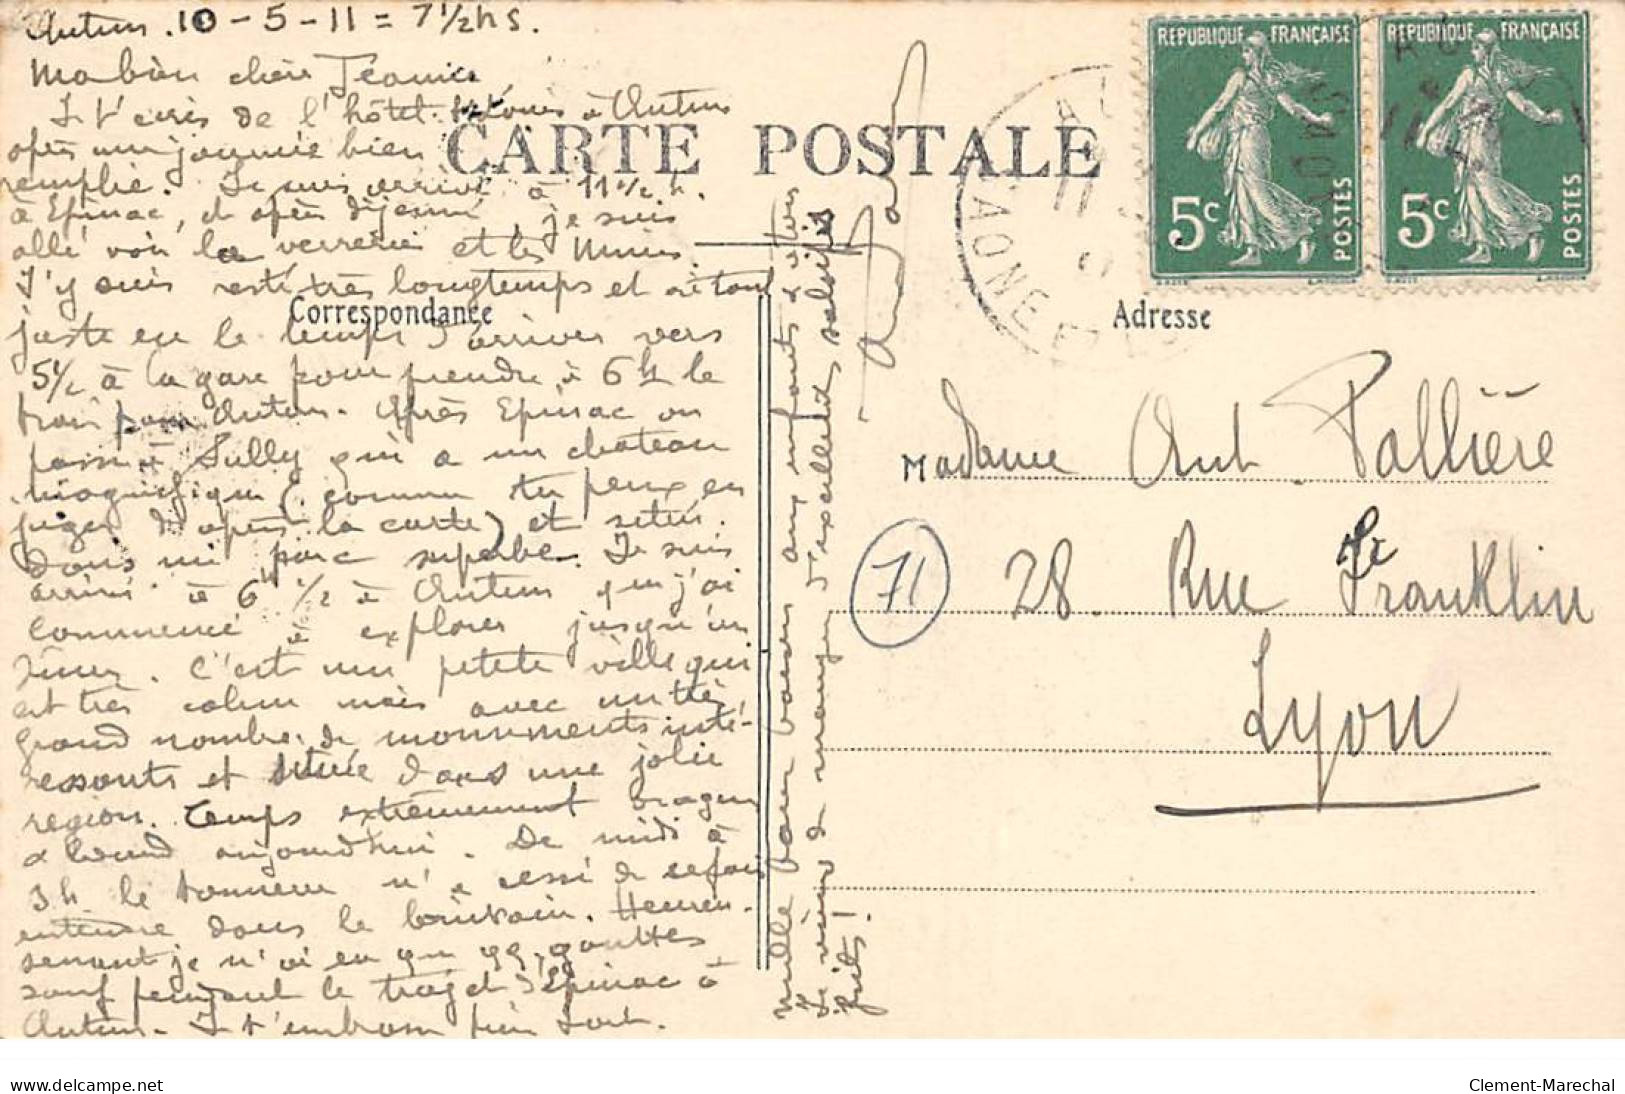 Autun. 10-5-11 = 7 1/2 hs.
Ma bien chère Jeanne
Je t'écris de l'hôtel St Louis à Autun
après une journée bien
remplie. Je suis arrivé à 11 1/2 h.
à Epinac, et après déjeuné je suis
allé voir la verrerie et les Mines.
J'y suis resté très longtemps et ai tout
juste eu le temps d'arriver vers
5 1/2 à la gare pour prendre à 6 h le
train pour Autun. Après Epinac on
passe à Sully qui a un chateau
magnifique (comme tu peux en
juger d'après la carte) et situé
dans un parc superbe. Je suis
arrivé à 6h 1/2 à Autun que j'ai
commencé à explorer jusqu'au
diner. C'est une petite ville qui
est très calme mais avec un très
grand nombre de monuments inté-
ressants et située dans une jolie
région. Temps extrêmement orageux
& lourd aujourd'hui. De midi à
3h le tonnerre n'a cessé de se faire
entendre dans le lointain. Heureu-
sement je n'ai eu que qq. gouttes
sauf pendant le trajet d'Epinac à
Autun. Je t'embrasse bien fort.
Mille bons baisers aux enfants & à tous
Je viens de manger d'excellents salsifis
frits!
CARTE POSTALE
Correspondance
Adresse
REPUBLIQUE FRANÇAISE
5c
POSTES
REPUBLIQUE FRANÇAISE
5c
POSTES
SAONE
Madame Ant. Pallière
71
28 Rue Franklin
Lyon
delcampe.net
Clement-Marechal